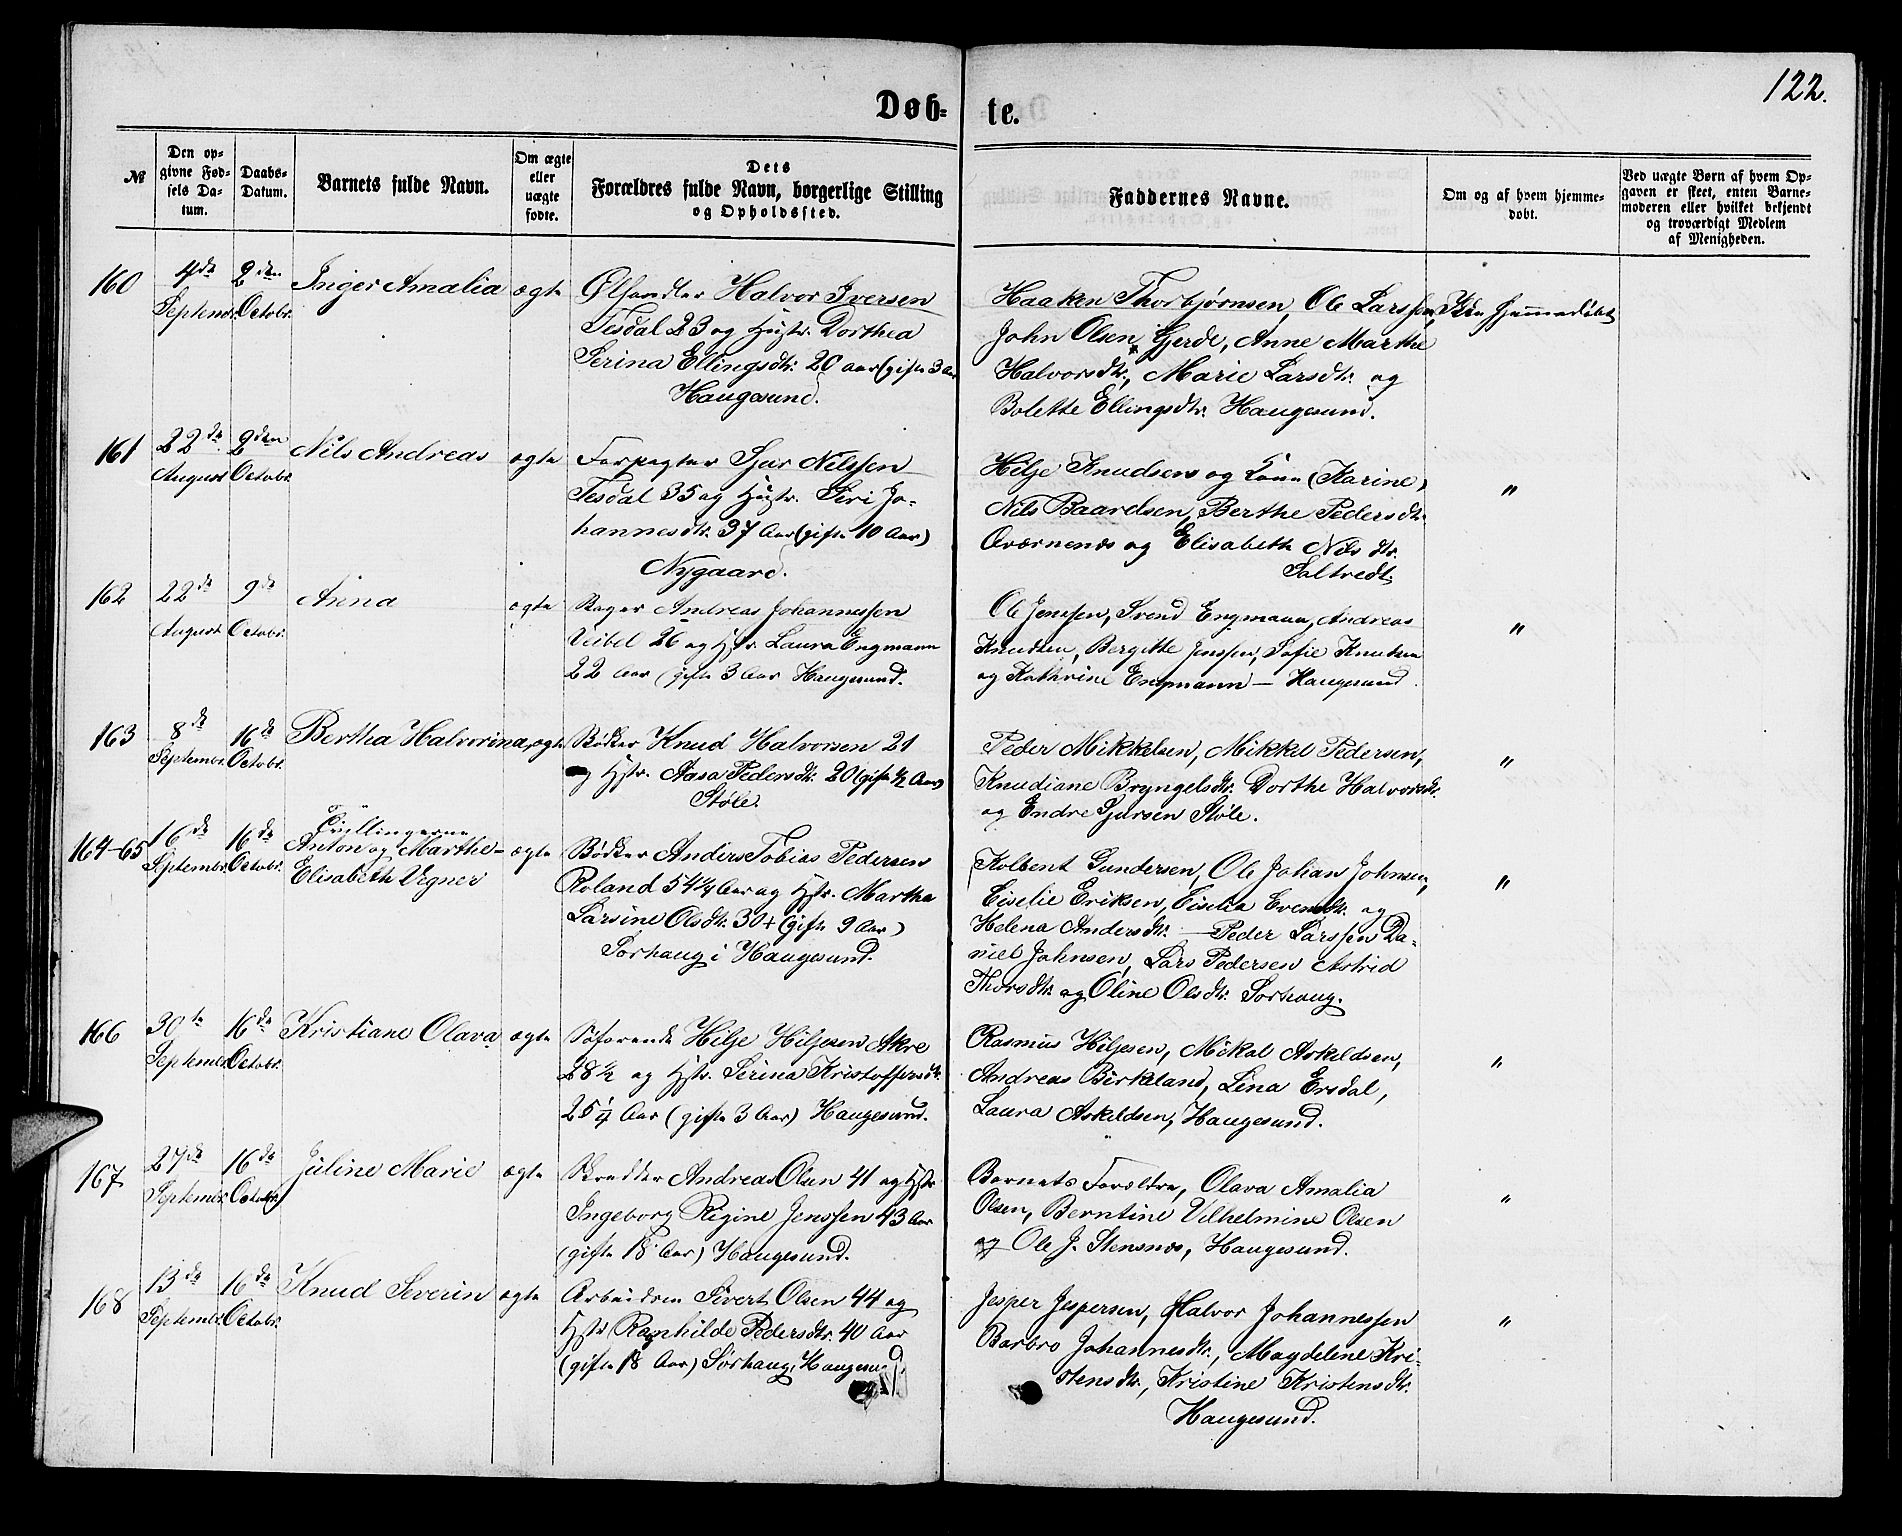 122.
Døb-
te.
№
Den op-
givne Fød-
sels Da-
tum.
Daabs-
Datum.
Barnets fulde Navn.
Om ægte
eller
uægte
fødte.
Dets
Forældres fulde Navn, borgerlige Stilling
og Opholdssted.
Faddernes Navne.
Om og af hvem hjemme-
døbt.
Ved uægte Børn af hvem Op-
gaven er skeet, enten Barne-
moderen eller hvilket bekjendt
og troværdigt Medlem
af Menigheden.
160
4de
Septembr.
2den
Octobr.
Inger Amalia
ægte
Ølhandler Halvor Iversen
Tesdal 23 og Hustr. Dorthea
Serina Ellingsdtr. 20 aar (gifte 3 Aar
Haugesund.
Haaken Thorbjørnsen, Ole Larssen,
John Olsen Gjerde, Anne Marthe
Halvorsdtr., Marie Larsdtr. og
Bolette Ellingsdtr. Haugesund.
Ikke hjemmedøbt
161
22de
August
2den
Octobr.
Nils Andreas
ægte
Forpagter Sjur Nilssen
Tesdal 35 og Hustr. Siri Jo-
hannesdtr. 37 Aar (gifte 10 Aar)
Nygaard.
Helje Knudsen og Kone (Karine)
Nils Baardsen, Berthe Pedersdtr.
Qværnenæs og Elisabeth Nilsdtr.
"
162
22de
August
9de
Octobr.
Anna
ægte
Bager Andreas Johannessen
26 og Hstr. Laura Engmann
22 Aar (gifte 3 Aar Haugesund.
Ole Jenssen, Svend Engmann, Andreas
Knudsen, Bergitte Jenssen, Sofie Knutsen
og Kathrine Engmann — Haugesund.
"
163
8de
Septembr.
16de
Octobr.
Bertha Halvorina
ægte
Bødker Knud Halvorsen 21
og Hstr. Aasa Pedersdtr. 20 (gifte ½ Aar)
Støle.
Peder Mikkelsen, Mikkel Pedersen,
Knudiane Bryngelsdtr. Dorthe Halvorsdtr.
og Endre Sjursen Støle.
"
164-65
16de
Septembr.
16de
Octobr.
Tvillingerne
Anton og Marthe
Elisabeth Vegner
ægte
Bødker Anders Tobias Pedersen
Roland 54¼ Aar og Hstr. Martha
Larsine Olsdtr. 30+ (gifte 9 Aar)
Sørhaug i Haugesund.
Kolbent Gundersen, Ole Johan Johnsen,
Eriksen, og
Helena Andersdtr. — Peder Larssen Da-
niel Johnsen, Lars Pedersen Astrid
Thorsdtr. og Oline Olsdtr. Sørhaug.
"
166
30te
Septembr
16de
Octobr.
Kristiane Olava
ægte
Søfarende Hilje Hiljesen Akre
28½ og Hstr. Serina Kristoffersdtr.
25¼ Aar (gifte 3 Aar) Haugesund.
Rasmus Hiljesen, Mikal Askildsen,
Andreas Birkeland, Lina Ersdal,
Laura Askildsen, Haugesund.
"
167
27de
Septembr
16de
Octobr.
Juline Marie
ægte
Skredder Andreas Olsen 41 og Hstr.
Ingeborg Regine Jenssen 43 Aar
(gifte 18 Aar) Haugesund.
Barnets Forældre, Olava Amalia
Olsen, Berntine Vilhelmine Olsen
og Ole J. Stensnæs, Haugesund.
"
168
13de
Septembr.
16de
Octobr.
Knud Severin
ægte
Arbeidsm Sivert Olsen 44 og
Hstr. Ragnhilde Pedersdtr. 40 Aar
(gifte 18 Aar) Sørhaug, Haugesund.
Jesper Jespersen, Halvor Johannessen
Barbro Johannesdtr., Magdelene Kri-
stensdtr., Kristine Kristensdtr.
Haugesund.
"